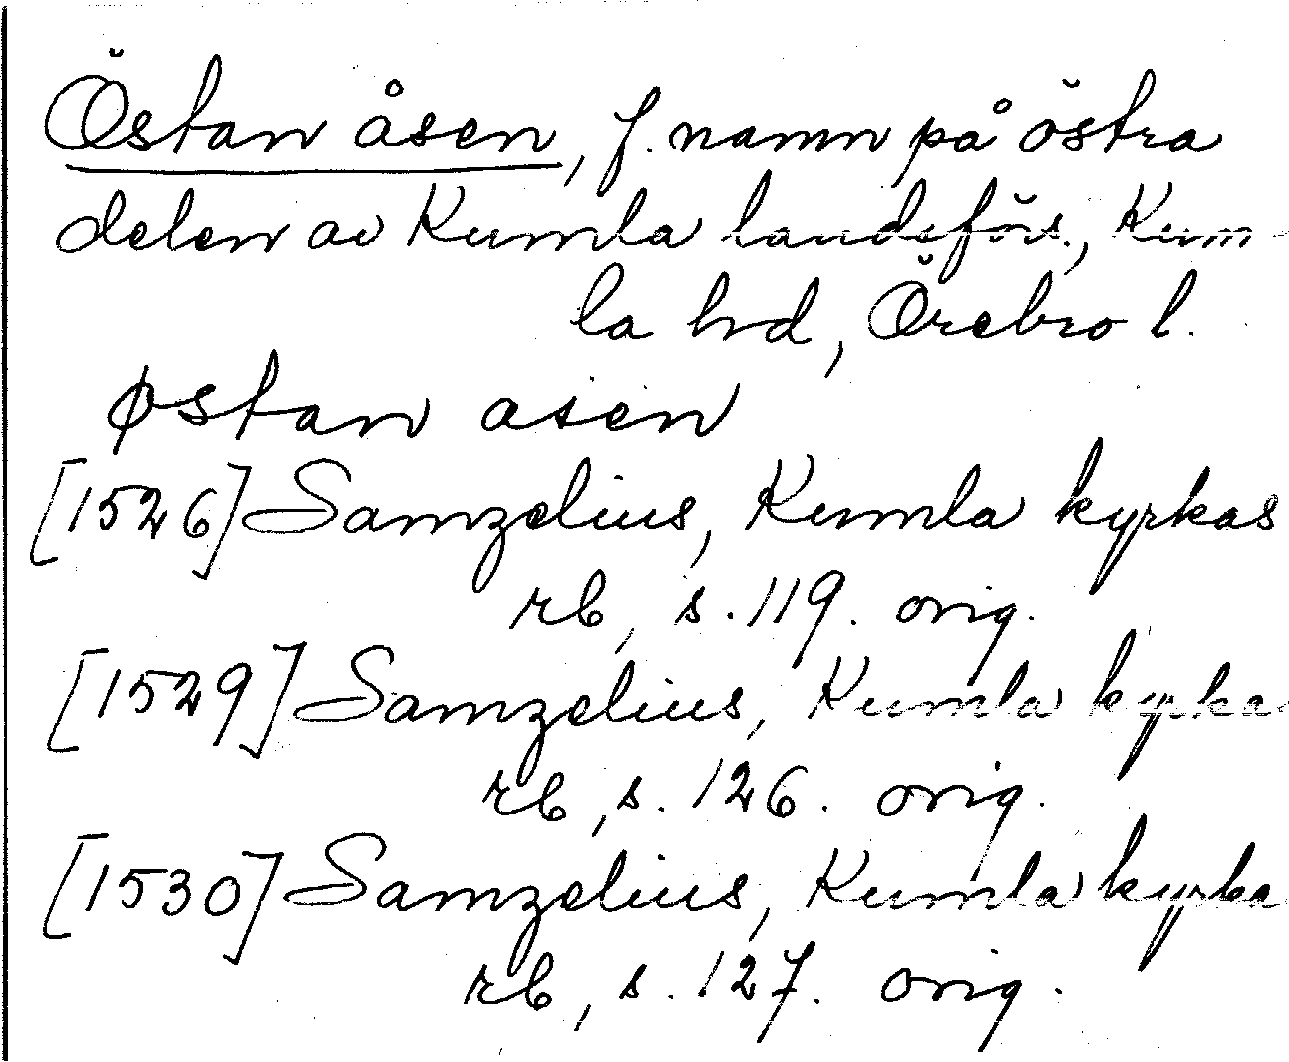 Östan åsen, f. namn på östra
delen av Kumla landsförs., Kum-
la hd, Örebro l.
Østan asen
[1526] Samzelius, Kumla kyrkas
rb, s. 119. orig.
[1529] Samzelius, Kumla kyrkas
rb, s. 126. orig.
[1530] Samzelius, Kumla kyrka
rb, s. 127. orig.